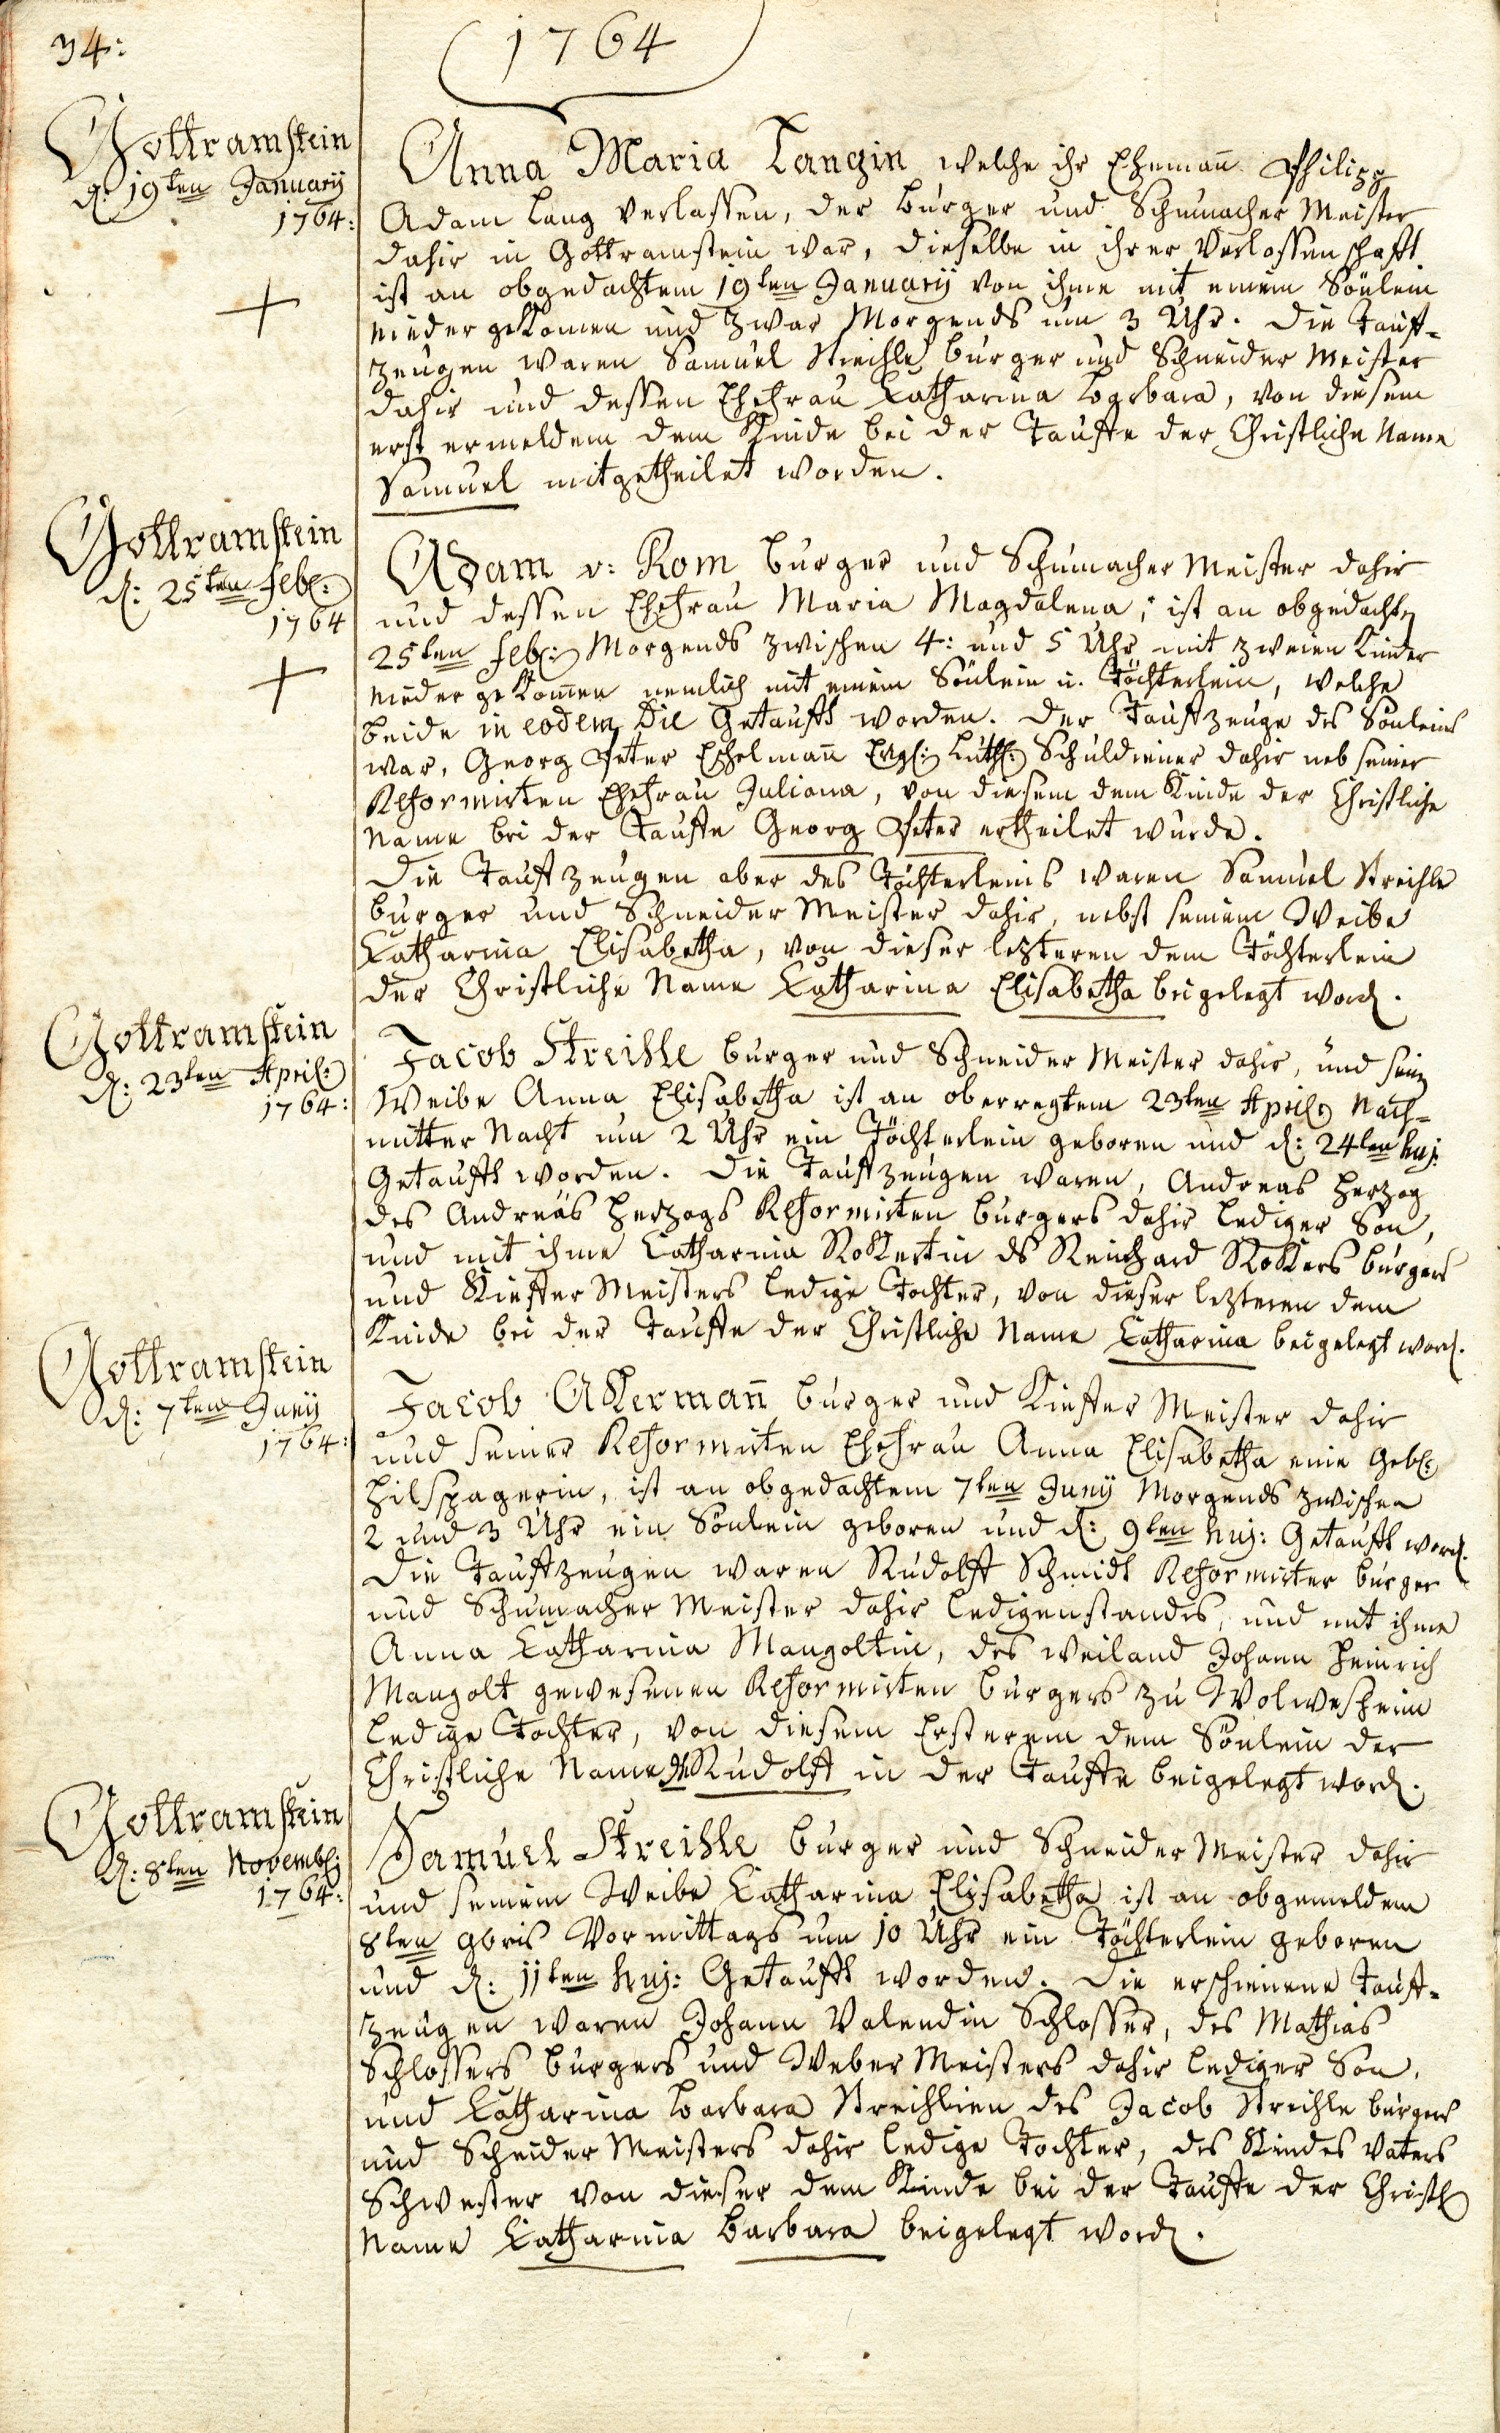 34:
1764
Gottramstein
d: 19ten January
1764:
Anna Maria Langin welche ihr Ehemañ Philipp
Adam Lang verlassen, der burger und Schumacher Meister
dahir in Gottramstein war, dieselbe in ihrer Verlassenschafft
ist an obgedachtem 19ten January von ihme mit einem Sönlein
nieder gekomen und zwar Morgends um 3 Uhr. Die Tauff-
zeugen waren Samuel Streihle burger und Schneider Meister
dahir und dessen Ehefrau Catharina Barbara, von diesem
erst ermeldem dem Kinde bei der Tauffe der Christliche Name
Samuel mitgetheilet worden.
Gottramstein
d: 25ten Feb:
1764
Adam v: Rom burger und Schumacher Meister dahir
und dessen Ehefrau Maria Magdalena, ist an obgedachten
25ten Feb: Morgends zwischen 4: und 5 Uhr mit zweien Kinder
nieder gekom̄en nemlich mit einem Sönlein u. Töchterlein, welche
beide in eodem Die Getaufft worden. Der Tauffzeuge des Sönleins
war, Georg Peter Eschelmañ Evgl: Luth: Schuldiener dahir neb seiner
Reformirten Ehefrau Juliana, von diesem dem Kinde der Christliche
Name bei der Tauffe Georg Peter ertheilet wurde.
Die Tauffzeugen aber des Töchterleins waren Samuel Streihle
burger und Schneider Meister dahir, nebst seinem Weibe
Catharina Elisabetha, von dieser letzteren dem Töchterlein
der Christliche Name Catharina Elisabetha beigelegt word.
Gottramstein
d: 23ten April:
1764:
Jacob Streihle burger und Schneider Meister dahir, und sein
Weibe Anna Elisabetha ist an oberregtem 23ten April Nach-
mitter Nacht um 2 Uhr ein Töchterlein geboren und d: 24ten huj:
Getaufft worden. Die Tauffzeugen waren, Andreas Herzog
des Andreas Herzogs Reformirten burgers dahir lediger Son,
und mit ihme Catharina Rokertin ds Reinhard Rokers burgers
und Kieffer Meisters ledige Tochter, von dieser letzteren dem
Kinde bei der Tauffe der Christliche Name Catharina beigelegt word.
Gottramstein
d: 7ten Juny
1764:
Jacob Akermañ burger und Kieffer Meister dahir
und seiner Reformirten Ehefrau Anna Elisabetha eine Geb:
Hilspagerin, ist an obgedachtem 7ten Juny Morgends zwischen
2 und 3 Uhr ein Sönlein geboren und d: 9ten huj: Getaufft word.
Die Tauffzeugen waren Rudolff Schmidt Reformirter burger
und Schumacher Meister dahir ledigenstandes, und mit ihme
Anna Catharina Mangoltin, des weiland Johann Heinrich
Mangolt gewesenen Reformirten burgers zu Wolmesheim
ledige Tochter, von diesem Ersterem dem Sönlein der
Christliche Name Rudolff in der Tauffe beigelegt word.
Gottramstein
d: 8ten Novemb:
1764:
Samuel Streihle burger und Schneider Meister dahir
und seinem Weibe Catharina Elisabetha ist an obgemeldem
8ten 9bris Vormittags um 10 Uhr ein Töchterlein geboren
und d: 11ten huj: Getaufft worden. Die erschienene Tauff-
zeugen waren Johann Valendin Schlosser, des Mathias
Schlossers burgers und Weber Meisters dahir lediger Son,
und Catharina Barbara Streihlien des Jacob Streihle burgers
und Scheider Meisters dahir ledige Tochter, des Kindes Vaters
Schwester von dieser dem Kinde bei der Tauffe der Christl
Name Catharina Barbara beigelegt word.